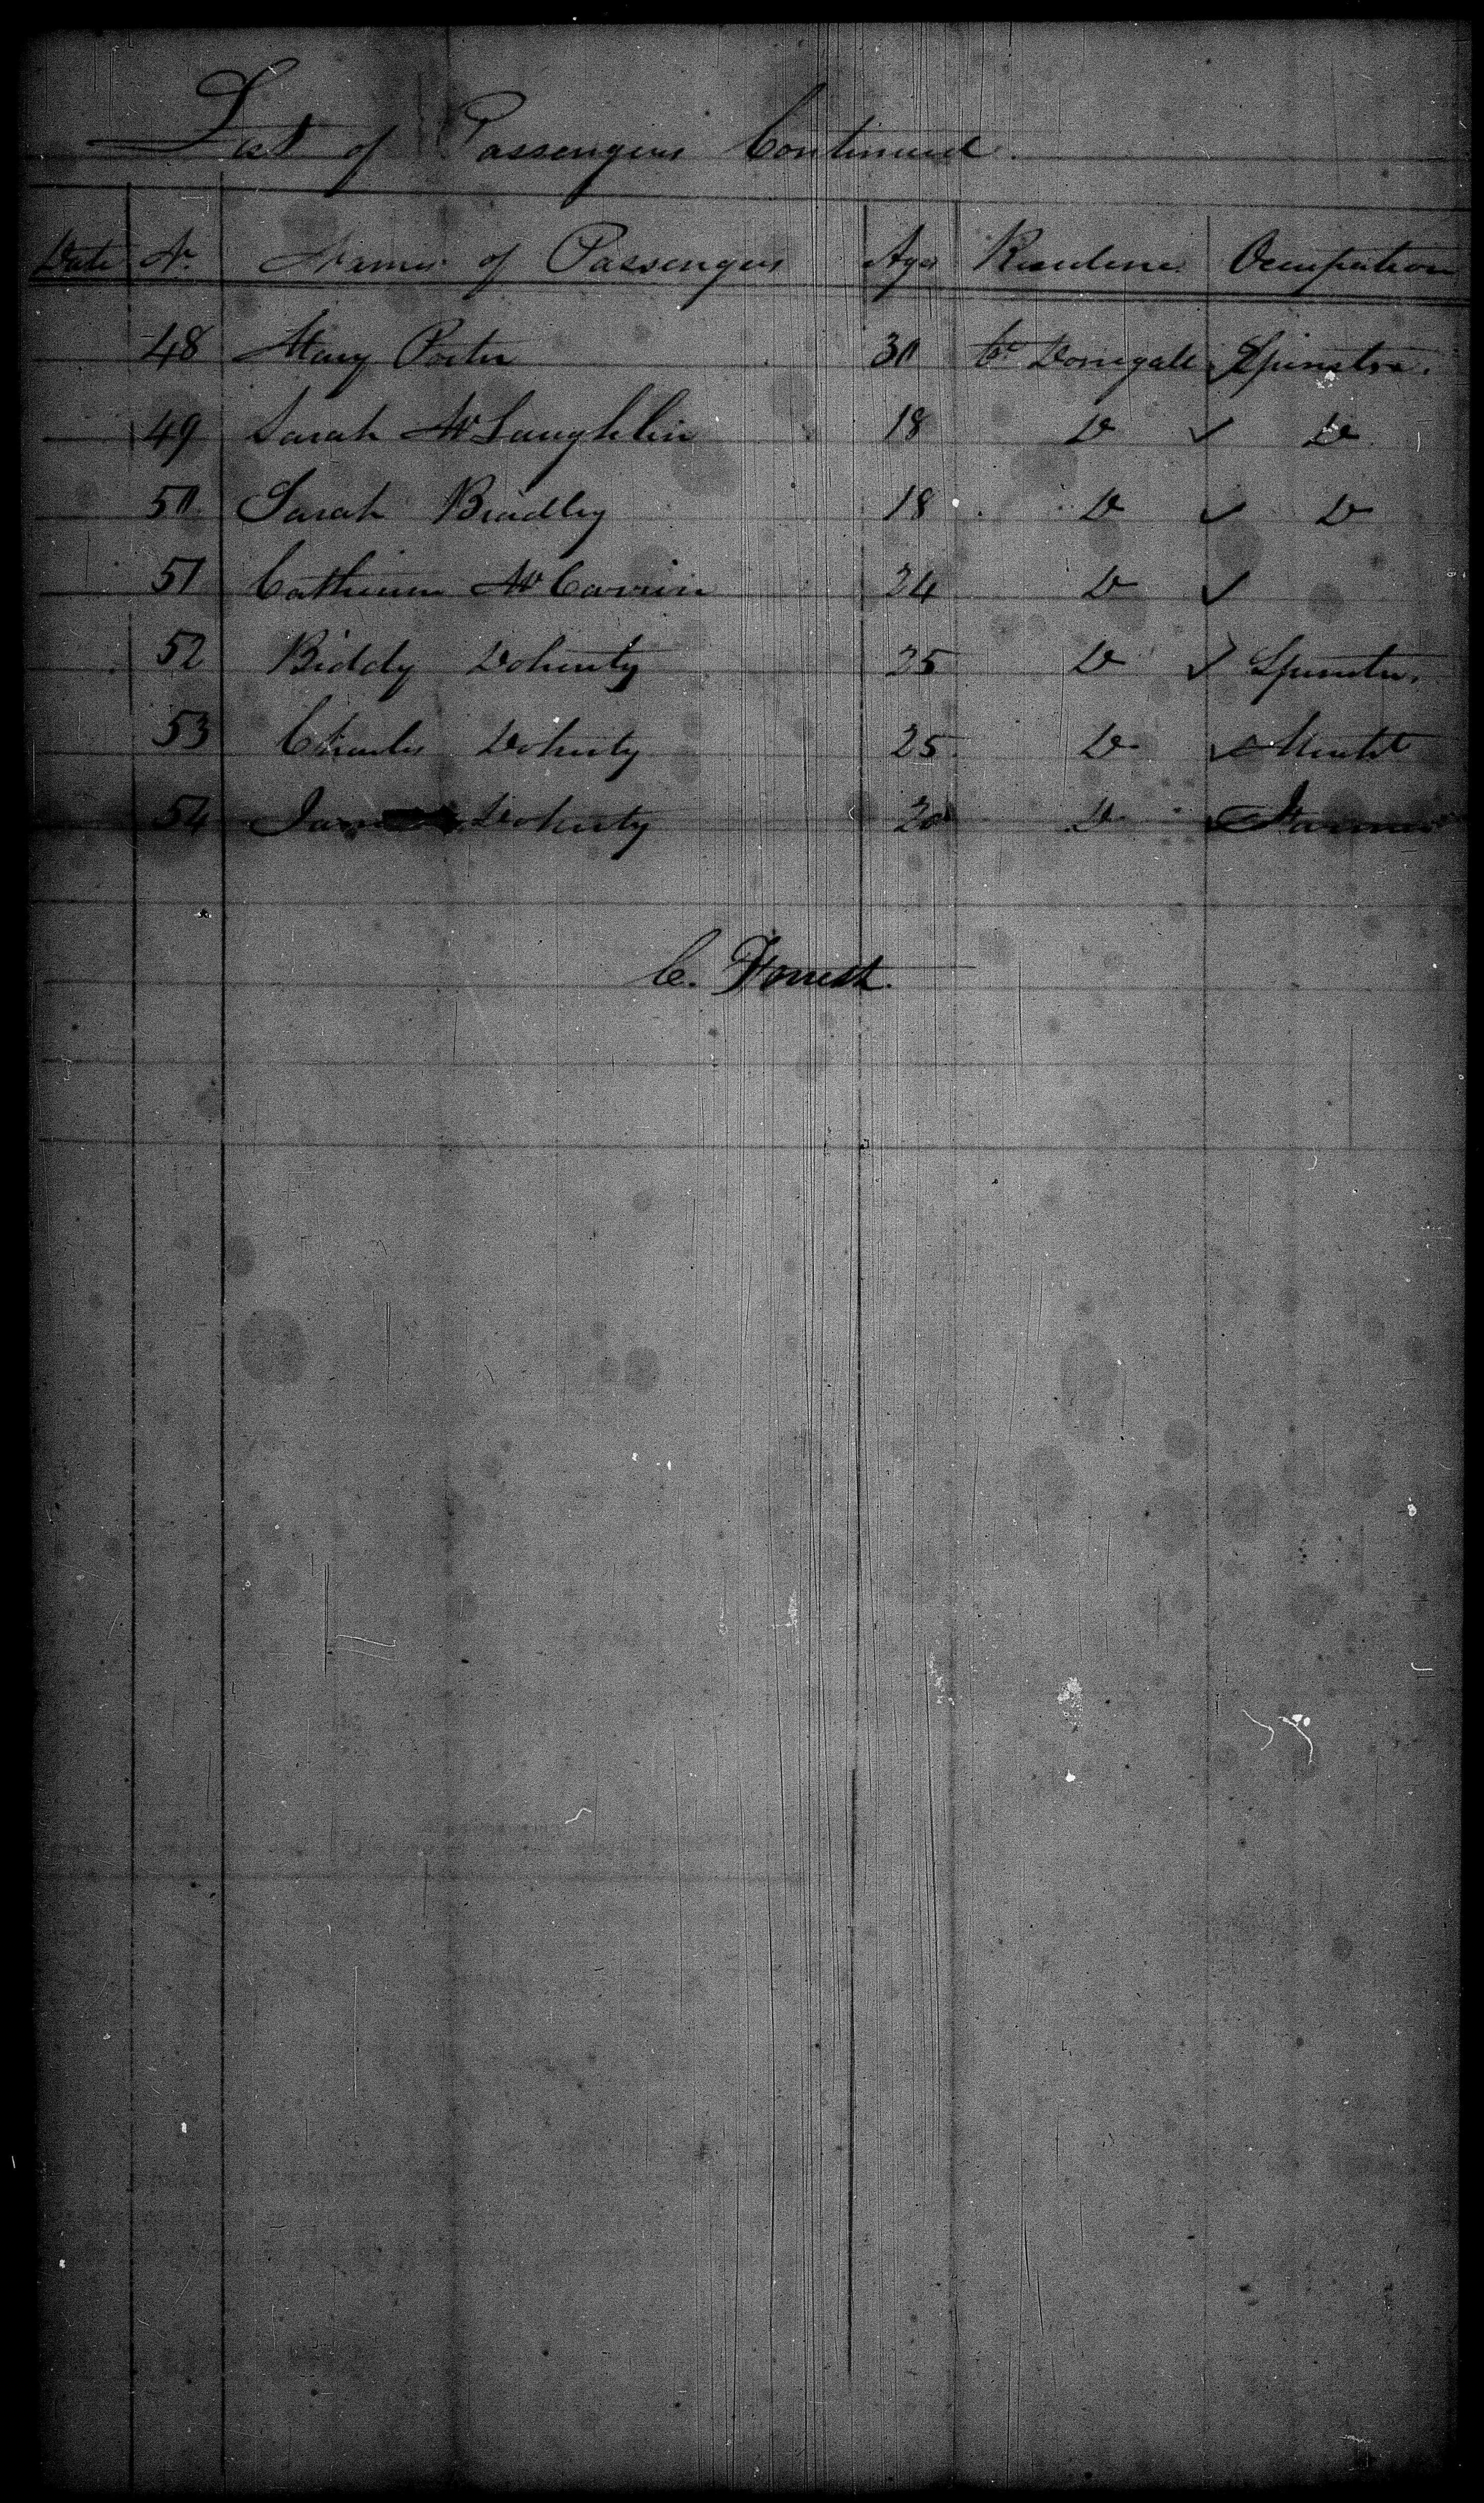 List of Passengers Continued.
Date No. Names of Passengers Ages Residence Occupation
48 Mary Porter 30 Co Donegall Spinster.
49 Sarah McLaughlin 18 Do ✓ Do
50 Sarah Bradley 18 Do ✓ Do
51 Catherine Mc 24 Do ✓
52 Biddy Doherty 25 Do ✓ Spinster.
53 Charles Doherty 25 Do ✓
54 Doherty 20 Do Farmer
C. Forrest.